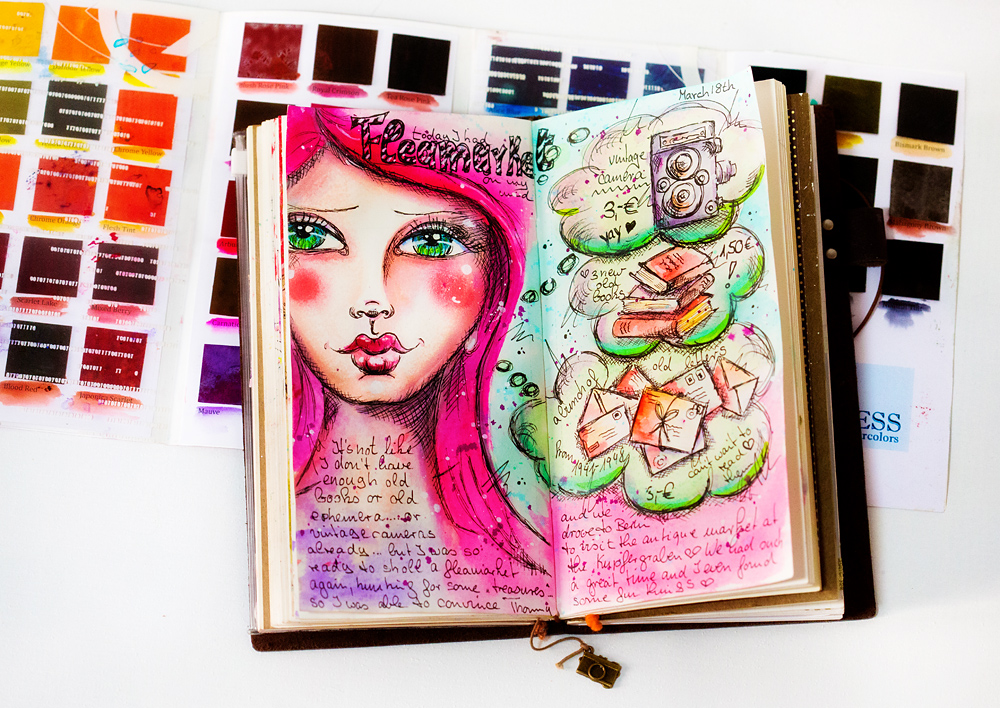 today I had
Fleamarket
on my
mind
It's not like
I don't have
enough old
books or old
ephemera.... or
vintage cameras
already ... but I was so
ready to stroll a fleamarket
again, hunting for some treasures
so I was able to convince Thommy
March 18th
vintage
camera
3,-€
yay ♥
1,50€
!
♡ 3 new
old
books
a bunch of
old letters
from 1941-1948
3,-€
can't wait to
read
them ♡
and we
drove to Berlin
to visit the antique market at
the Kupfergraben ♡ We had such
a great time and I even found
some fun things ♡
Chrome Yellow
Chrome
Flesh Tint
Scarlet Lake
Mixed Berry
Blood Red
Japonica Scarlet
Mauve
Bismark Brown
ESS